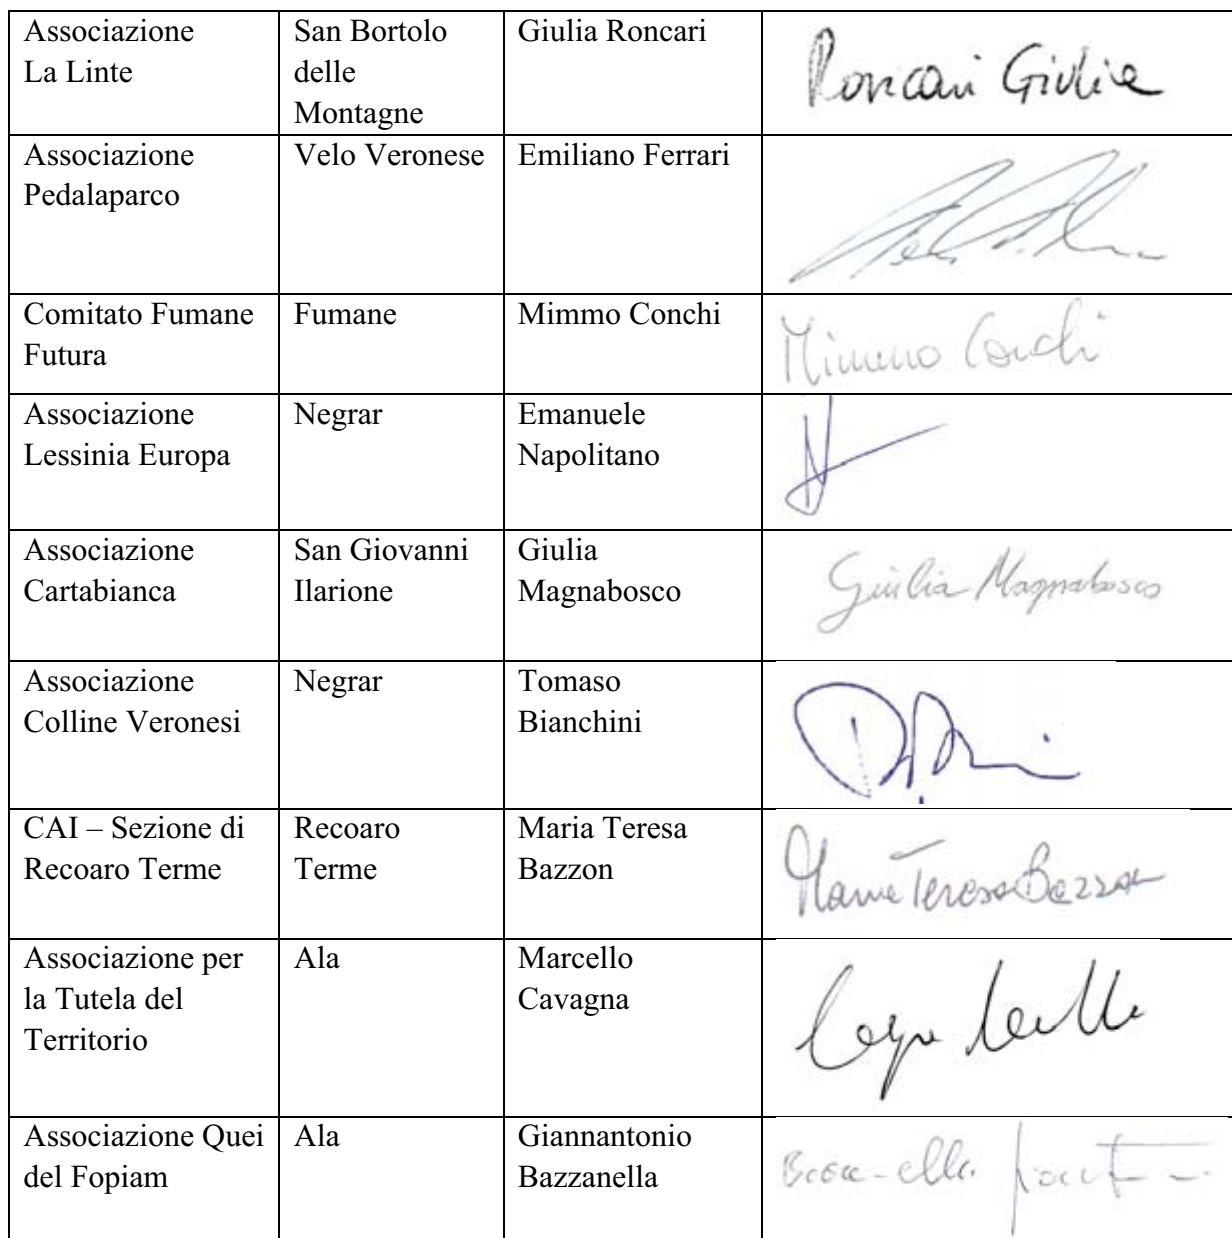 Associazione
La Linte
San Bortolo
delle
Montagne
Giulia Roncari
Roncari Giulia
Associazione
Pedalaparco
Velo Veronese
Emiliano Ferrari
Comitato Fumane
Futura
Fumane
Mimmo Conchi
Mimmo Conchi
Associazione
Lessinia Europa
Negrar
Emanuele
Napolitano
Associazione
Cartabianca
San Giovanni
Ilarione
Giulia
Magnabosco
Giulia Magnabosco
Associazione
Colline Veronesi
Negrar
Tomaso
Bianchini
CAI – Sezione di
Recoaro Terme
Recoaro
Terme
Maria Teresa
Bazzon
Maria Teresa Bazzon
Associazione per
la Tutela del
Territorio
Ala
Marcello
Cavagna
Associazione Quei
del Fopiam
Ala
Giannantonio
Bazzanella